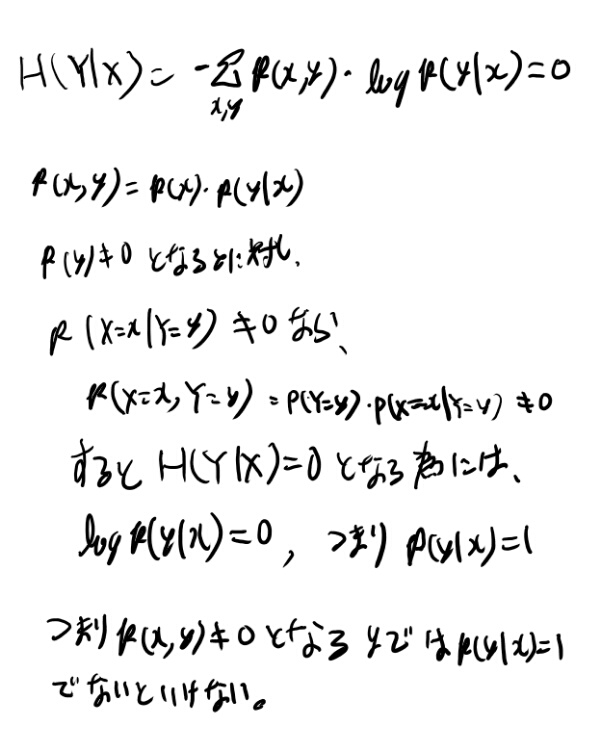 H(Y|X) = -Σ P(x,y)・log P(y|x) = 0
x,y
P(x,y) = P(x)・P(y|x)
P(y) ≠ 0 となるyに対し、
P(X=x|Y=y) ≠ 0 なら、
P(X=x, Y=y) = P(Y=y)・P(X=x|Y=y) ≠ 0
すると H(Y|X)=0 となる為には、
log P(y|x) = 0, つまり P(y|x) = 1
つまり P(x,y) ≠ 0 となる yでは P(y|x)=1
でないといけない。